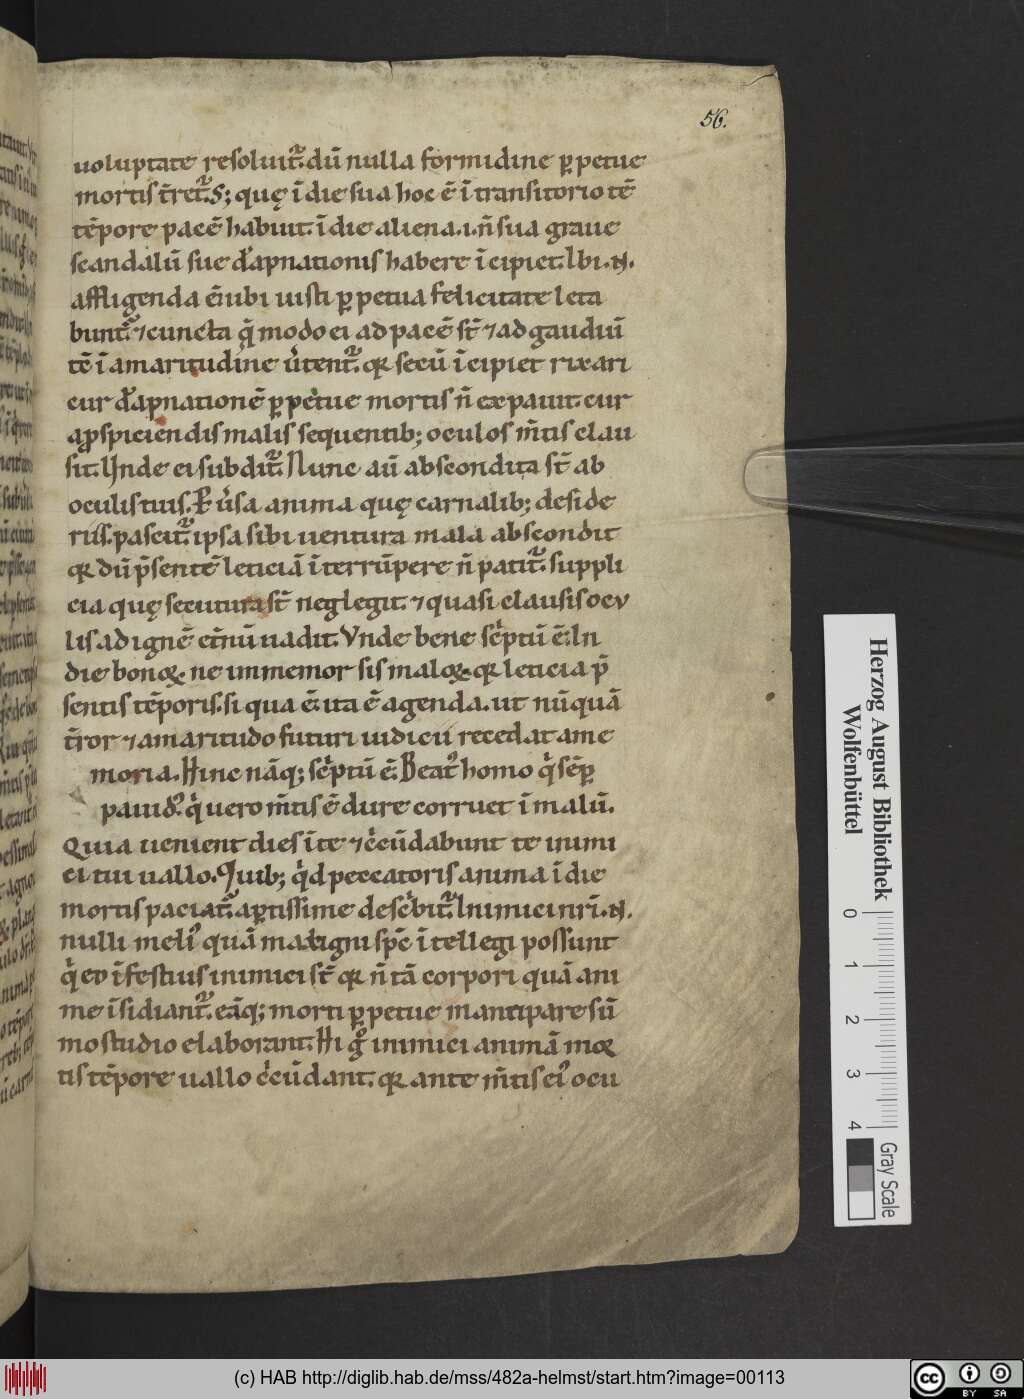 56.
uoluptate resoluit᷑. dū nulla formidine ꝑpetue
mortis t̄ret᷑. S; quę ī die sua hoc ē ī transitorio tē
tēpore pacē habuit. ī die aliena .i. n̄ sua graue
scandalū sue dāpnationis habere īcipiet. Ibi .N.
affligenda ē. ubi iusti ꝑpetua felicitate leta
bunt᷑. ⁊ cuncta q̄ modo ei ad pacē st̄ ⁊ ad gaudiū
tē ī amaritudine ūtent᷑. qꝛ secū īcipiet rixari
cur dāpnationē ꝑpetue mortis n̄ expauit. cur
a ꝓspiciendis malis sequentib; oculos m̄tis clau
sit. Unde ei subdit᷑. Nunc aū abscondita st̄ ab
oculis tuis. P̄uersa anima quę carnalib; deside
riis. pascit᷑. ipsa sibi uentura mala abscondit
qꝛ dū p̄sentē leticiā īterrūpere n̄ patit᷑. suppli
cia quę secutura st̄ neglegit. ⁊ quasi clausis ocu
lis ad ignē et̄nū uadit. Vnde bene sc̄ptū ē. In
die bonoꝝ. ne immemor sis maloꝝ. qꝛ leticia p̄
sentis tēporis. si qua ē. ita ē agenda. ut nūquā
t̄ror ⁊ amaritudo futuri iudicii recedat a me
moria. Hinc nāq; sc̄ptū ē. Beatꝰ homo q̄ sēꝑ
pauidꝰ. q̄ uero m̄tis ē dure corruet ī malū.
Quia uenient dies ī te ⁊ c̄cūdabunt te inimi
ci tui uallo. Quib; q̄d peccatoris anima ī die
mortis paciat᷑. aꝑtissime desc̄bit᷑. Inimici nr̄i .N.
nulli meliꝰ quā maligni sp̄c ītellegi possunt
q̄ eo īfestius inimici st̄ qꝛ n̄ tā corpori quā ani
me īsidiant᷑. eāq; morti ꝑpetue mancipare sū
mo studio elaborant. Hi gͦ inimici animā moꝛ
tis tēpore uallo c̄cūdant. qꝛ ante m̄tis eiꝰ ocu
Herzog August Bibliothek
Wolfenbüttel
0 1 2 3 4
Gray Scale
(c) HAB http://diglib.hab.de/mss/482a-helmst/start.htm?image=00113
cc BY SA